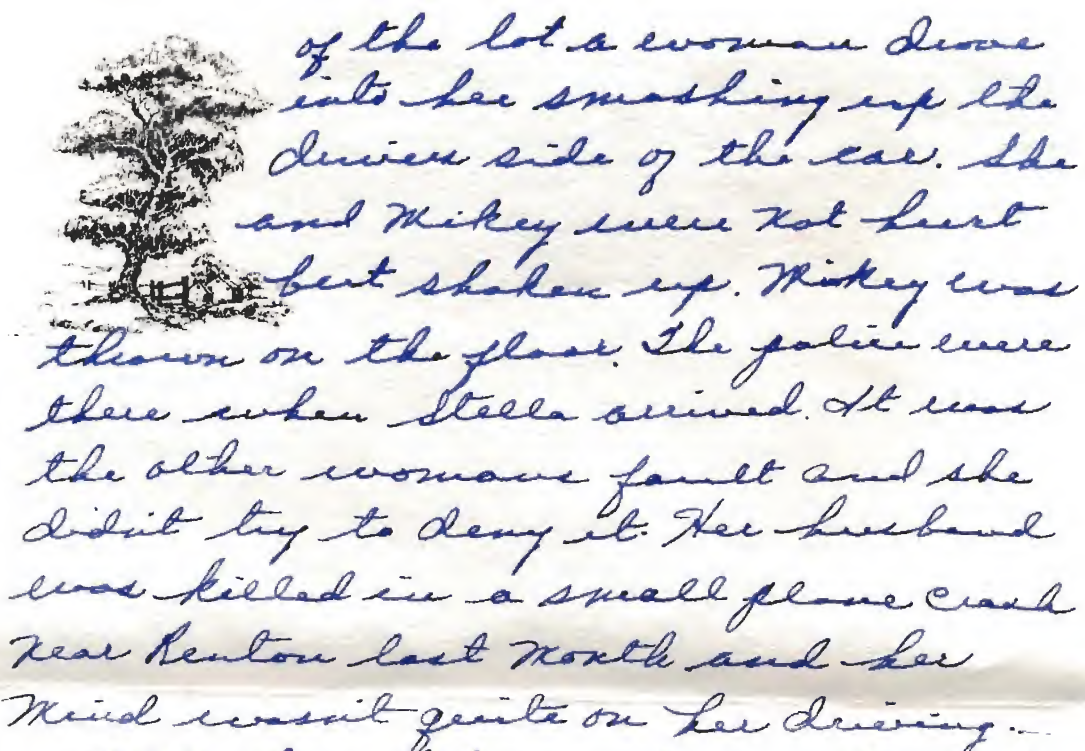 of the lot a woman drove
into her smashing up the
drivers side of the car. She
and Mikey were not hurt
but shaken up. Mikey was
thrown on the floor. The police were
there when Stella arrived. It was
the other womans fault and she
didn't try to deny it. Her husband
was killed in a small plane crash
near Renton last month and her
mind wasn't quite on her driving...